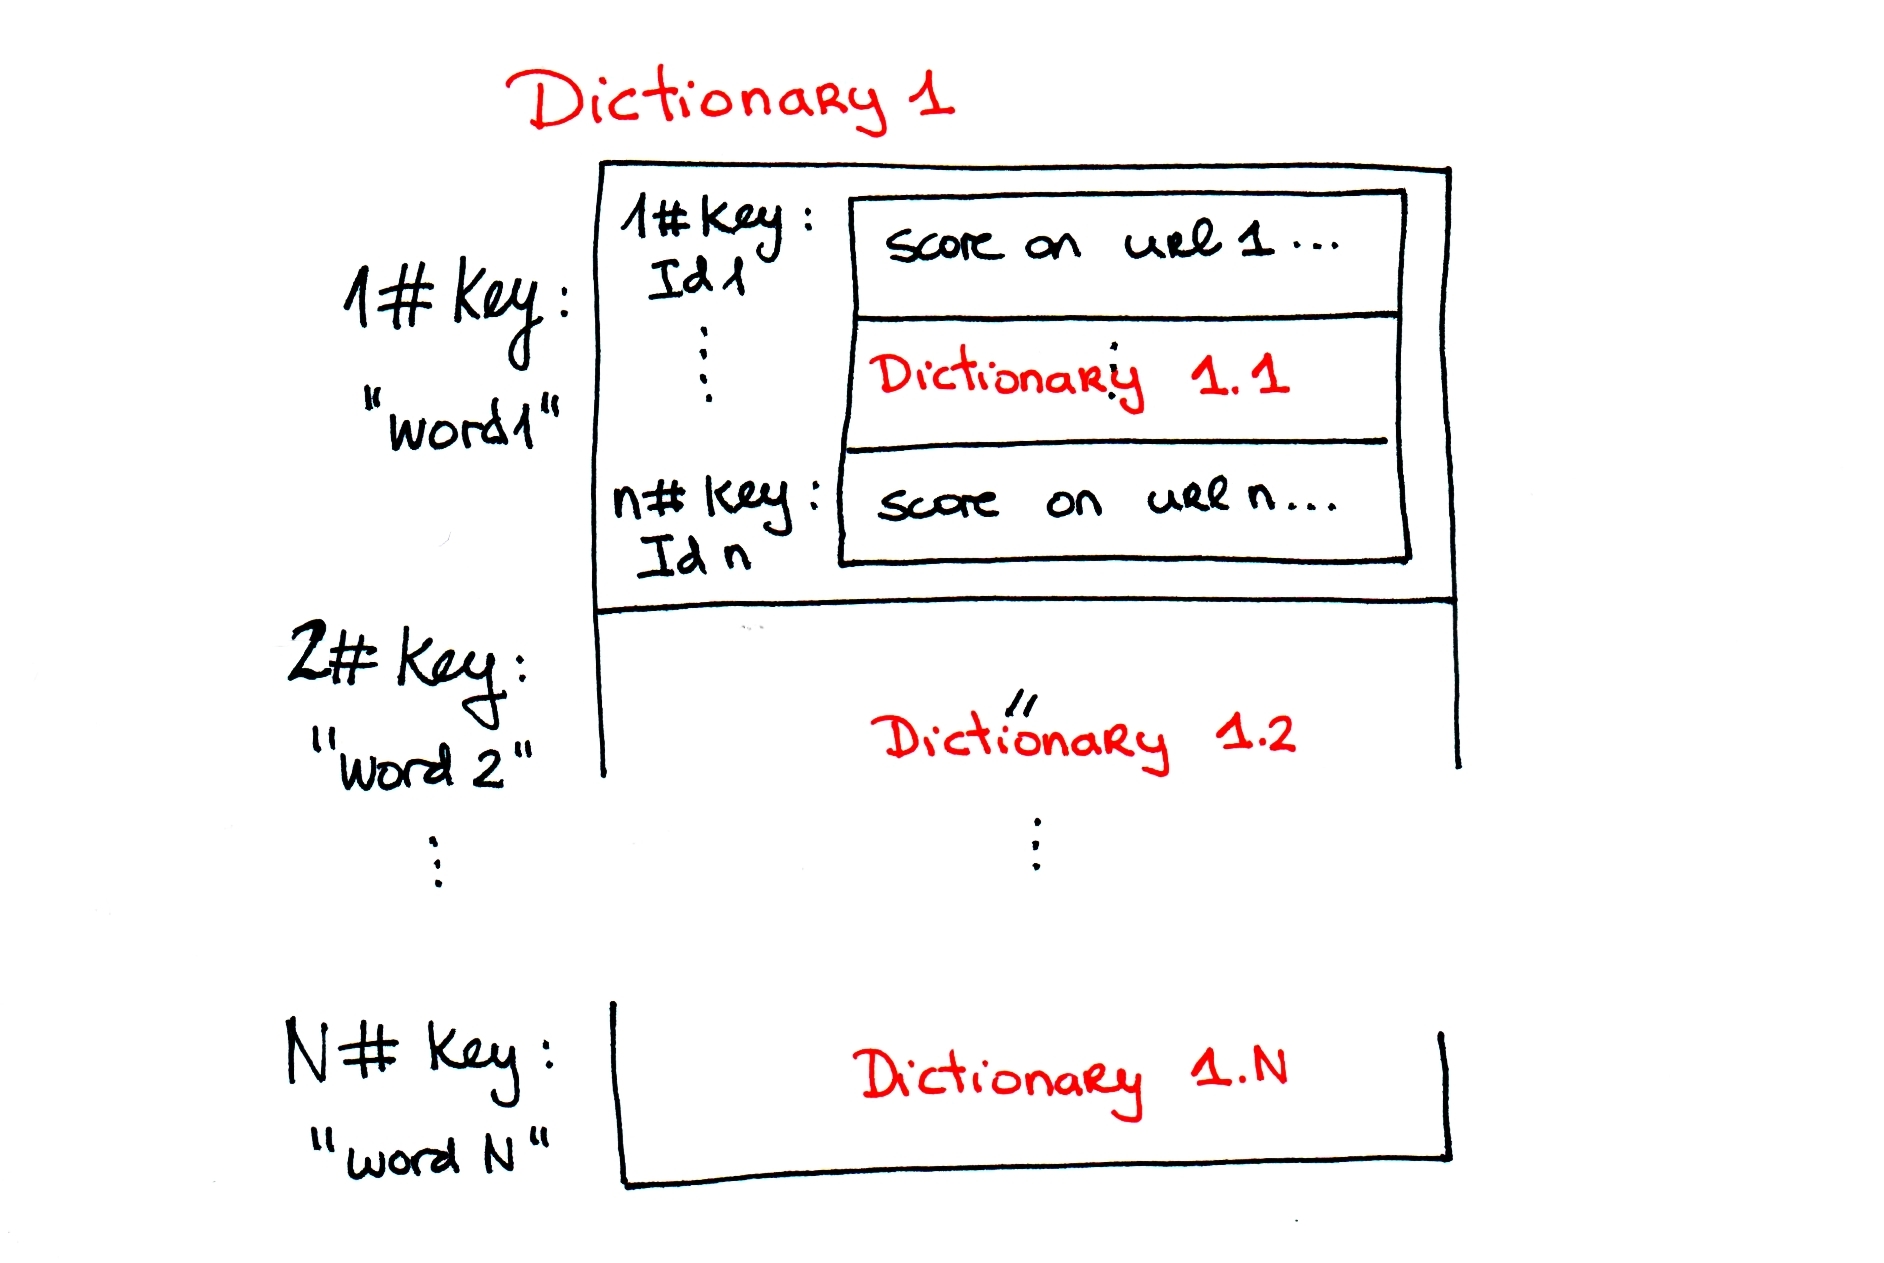 Dictionary 1
1# Key:
"word1"
1# Key:
Id1
score on url 1...
Dictionary 1.1
n# Key:
Id n
score on url n...
2# Key:
"word 2"
"
Dictionary 1.2
N# Key:
"word N"
Dictionary 1.N